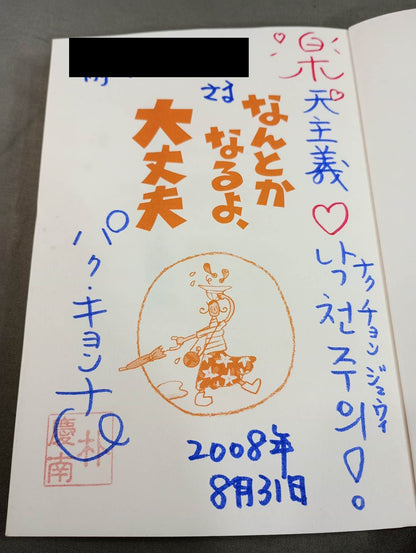 楽天主義
낙천주의!
ナクチョンジュウィ
さま
なんとか
なるよ、
大丈夫
パク・キョンナム
朴
慶南
2008年
8月31日